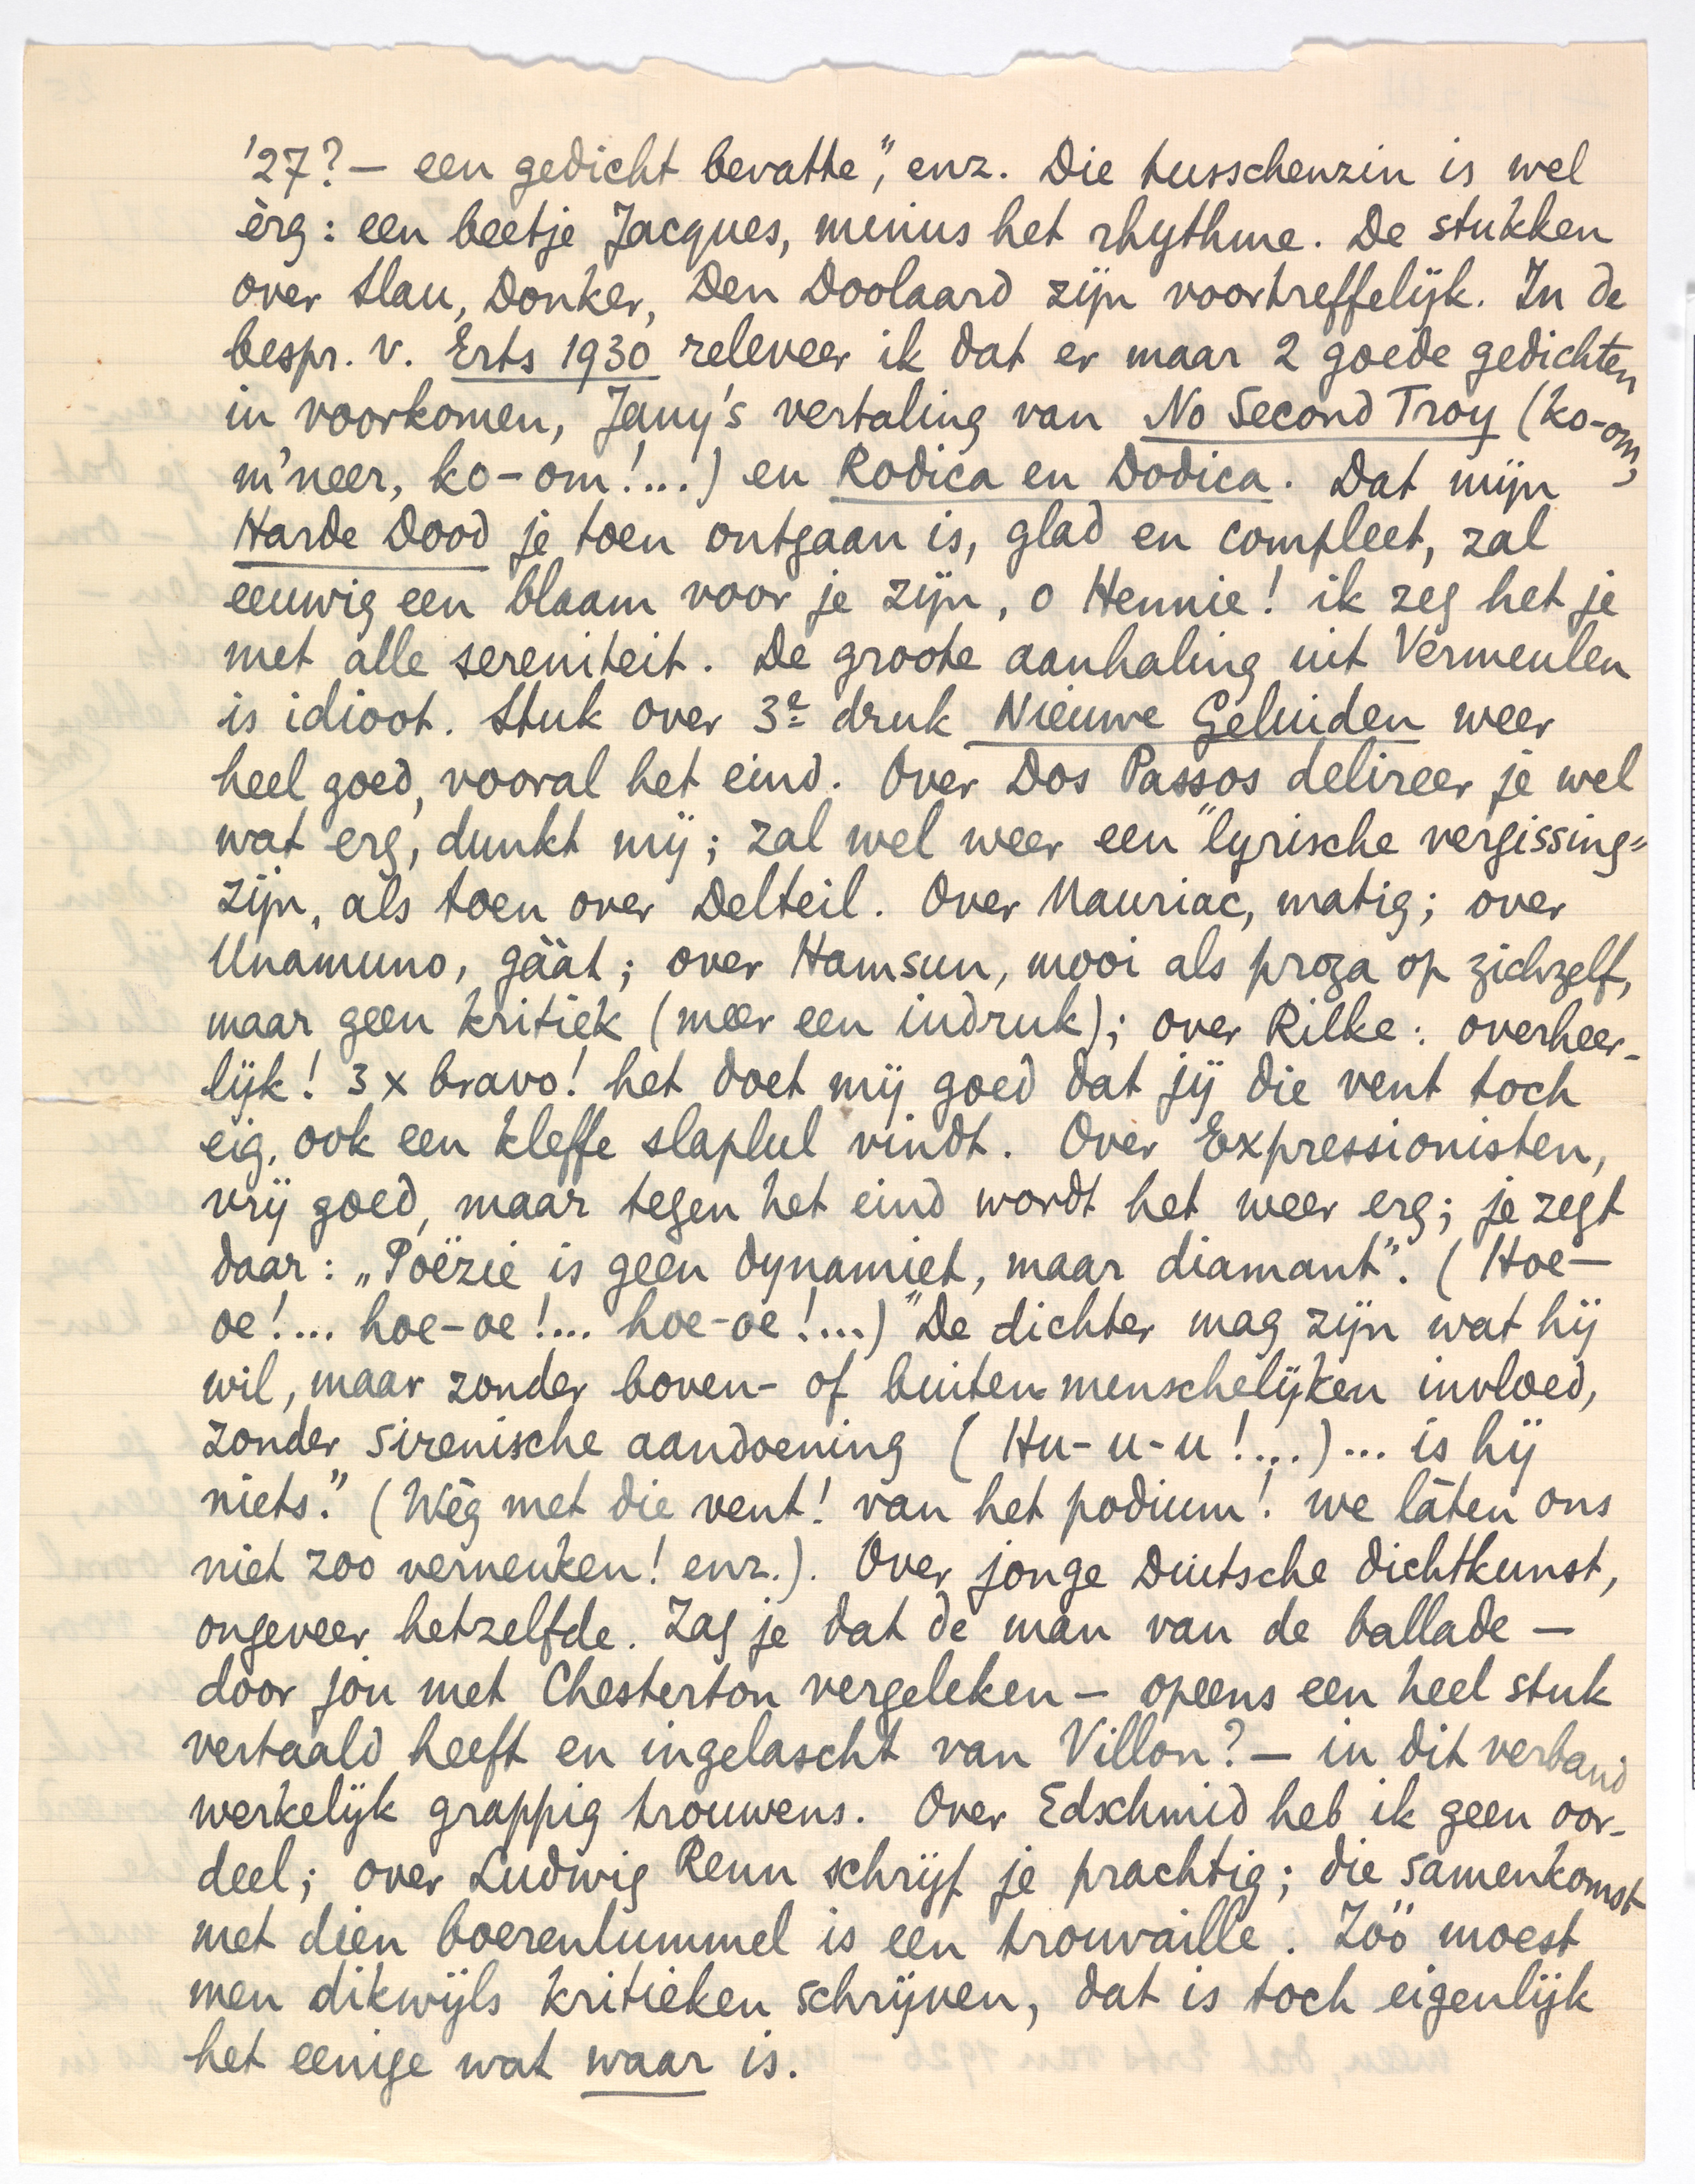 '27? — een gedicht bevatte", enz. Die tusschenzin is wel
èrg: een beetje Jacques, minus het rhythme. De stukken
over Slau, Donker, Den Doolaard zijn voortreffelijk. In de
bespr. v. Erts 1930 releveer ik dat er maar 2 goede gedichten
in voorkomen, Jany's vertaling van No Second Troy (ko-om,
m'neer, ko-om!...) en Rodica en Dodica. Dat mijn
Harde Dood je toen ontgaan is, glad en compleet, zal
eeuwig een blaam voor je zijn, o Hennie! ik zeg het je
met alle sereniteit. De groote aanhaling uit Vermeulen
is idioot. Stuk over 3e druk Nieuwe Geluiden weer
heel goed, vooral het eind. Over Dos Passos delireer je wel
wat erg, dunkt mij; zal wel weer een "lyrische vergissing"
zijn, als toen over Delteil. Over Mauriac, matig; over
Unamuno, gäät; over Hamsun, mooi als proza op zichzelf,
maar geen kritiek (meer een indruk); over Rilke: overheer-
lijk! 3 x bravo! het doet mij goed dat jij die vent toch
eig. ook een kleffe slaplul vindt. Over Expressionisten,
vrij goed, maar tegen het eind wordt het weer erg; je zegt
daar: „Poëzie is geen dynamiet, maar diamant". (Hoe—
oe!... hoe-oe!... hoe-oe!...) "De dichter mag zijn wat hij
wil, maar zonder boven- of buitenmenschelijken invloed,
zonder sirenische aandoening (Hu-u-u!...)... is hij
niets." (Wég met die vent! van het podium! we láten ons
niet zoo verneuken! enz.). Over jonge Duitsche dichtkunst,
ongeveer hetzelfde. Zag je dat de man van de ballade —
door jou met Chesterton vergeleken — opeens een heel stuk
vertaald heeft en ingelascht van Villon? — in dit verband
werkelijk grappig trouwens. Over Edschmid heb ik geen oor-
deel; over Ludwig Renn schrijf je prachtig; die samenkomst
met dien boerenlummel is een trouvaille. Zóó moest
men dikwijls kritieken schrijven, dat is toch eigenlijk
het eenige wat waar is.